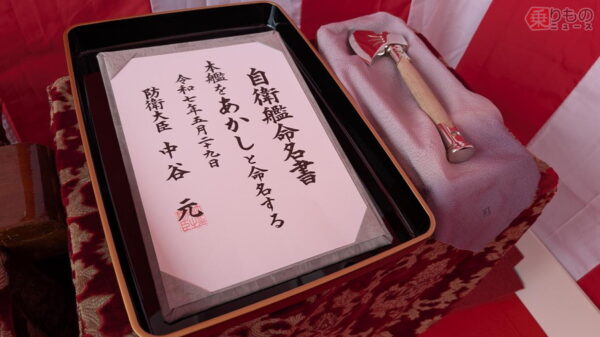 自衛艦命名書
本艦をあかしと命名する
令和七年五月二十九日
防衛大臣 中谷 元
乗りもの
ニュース